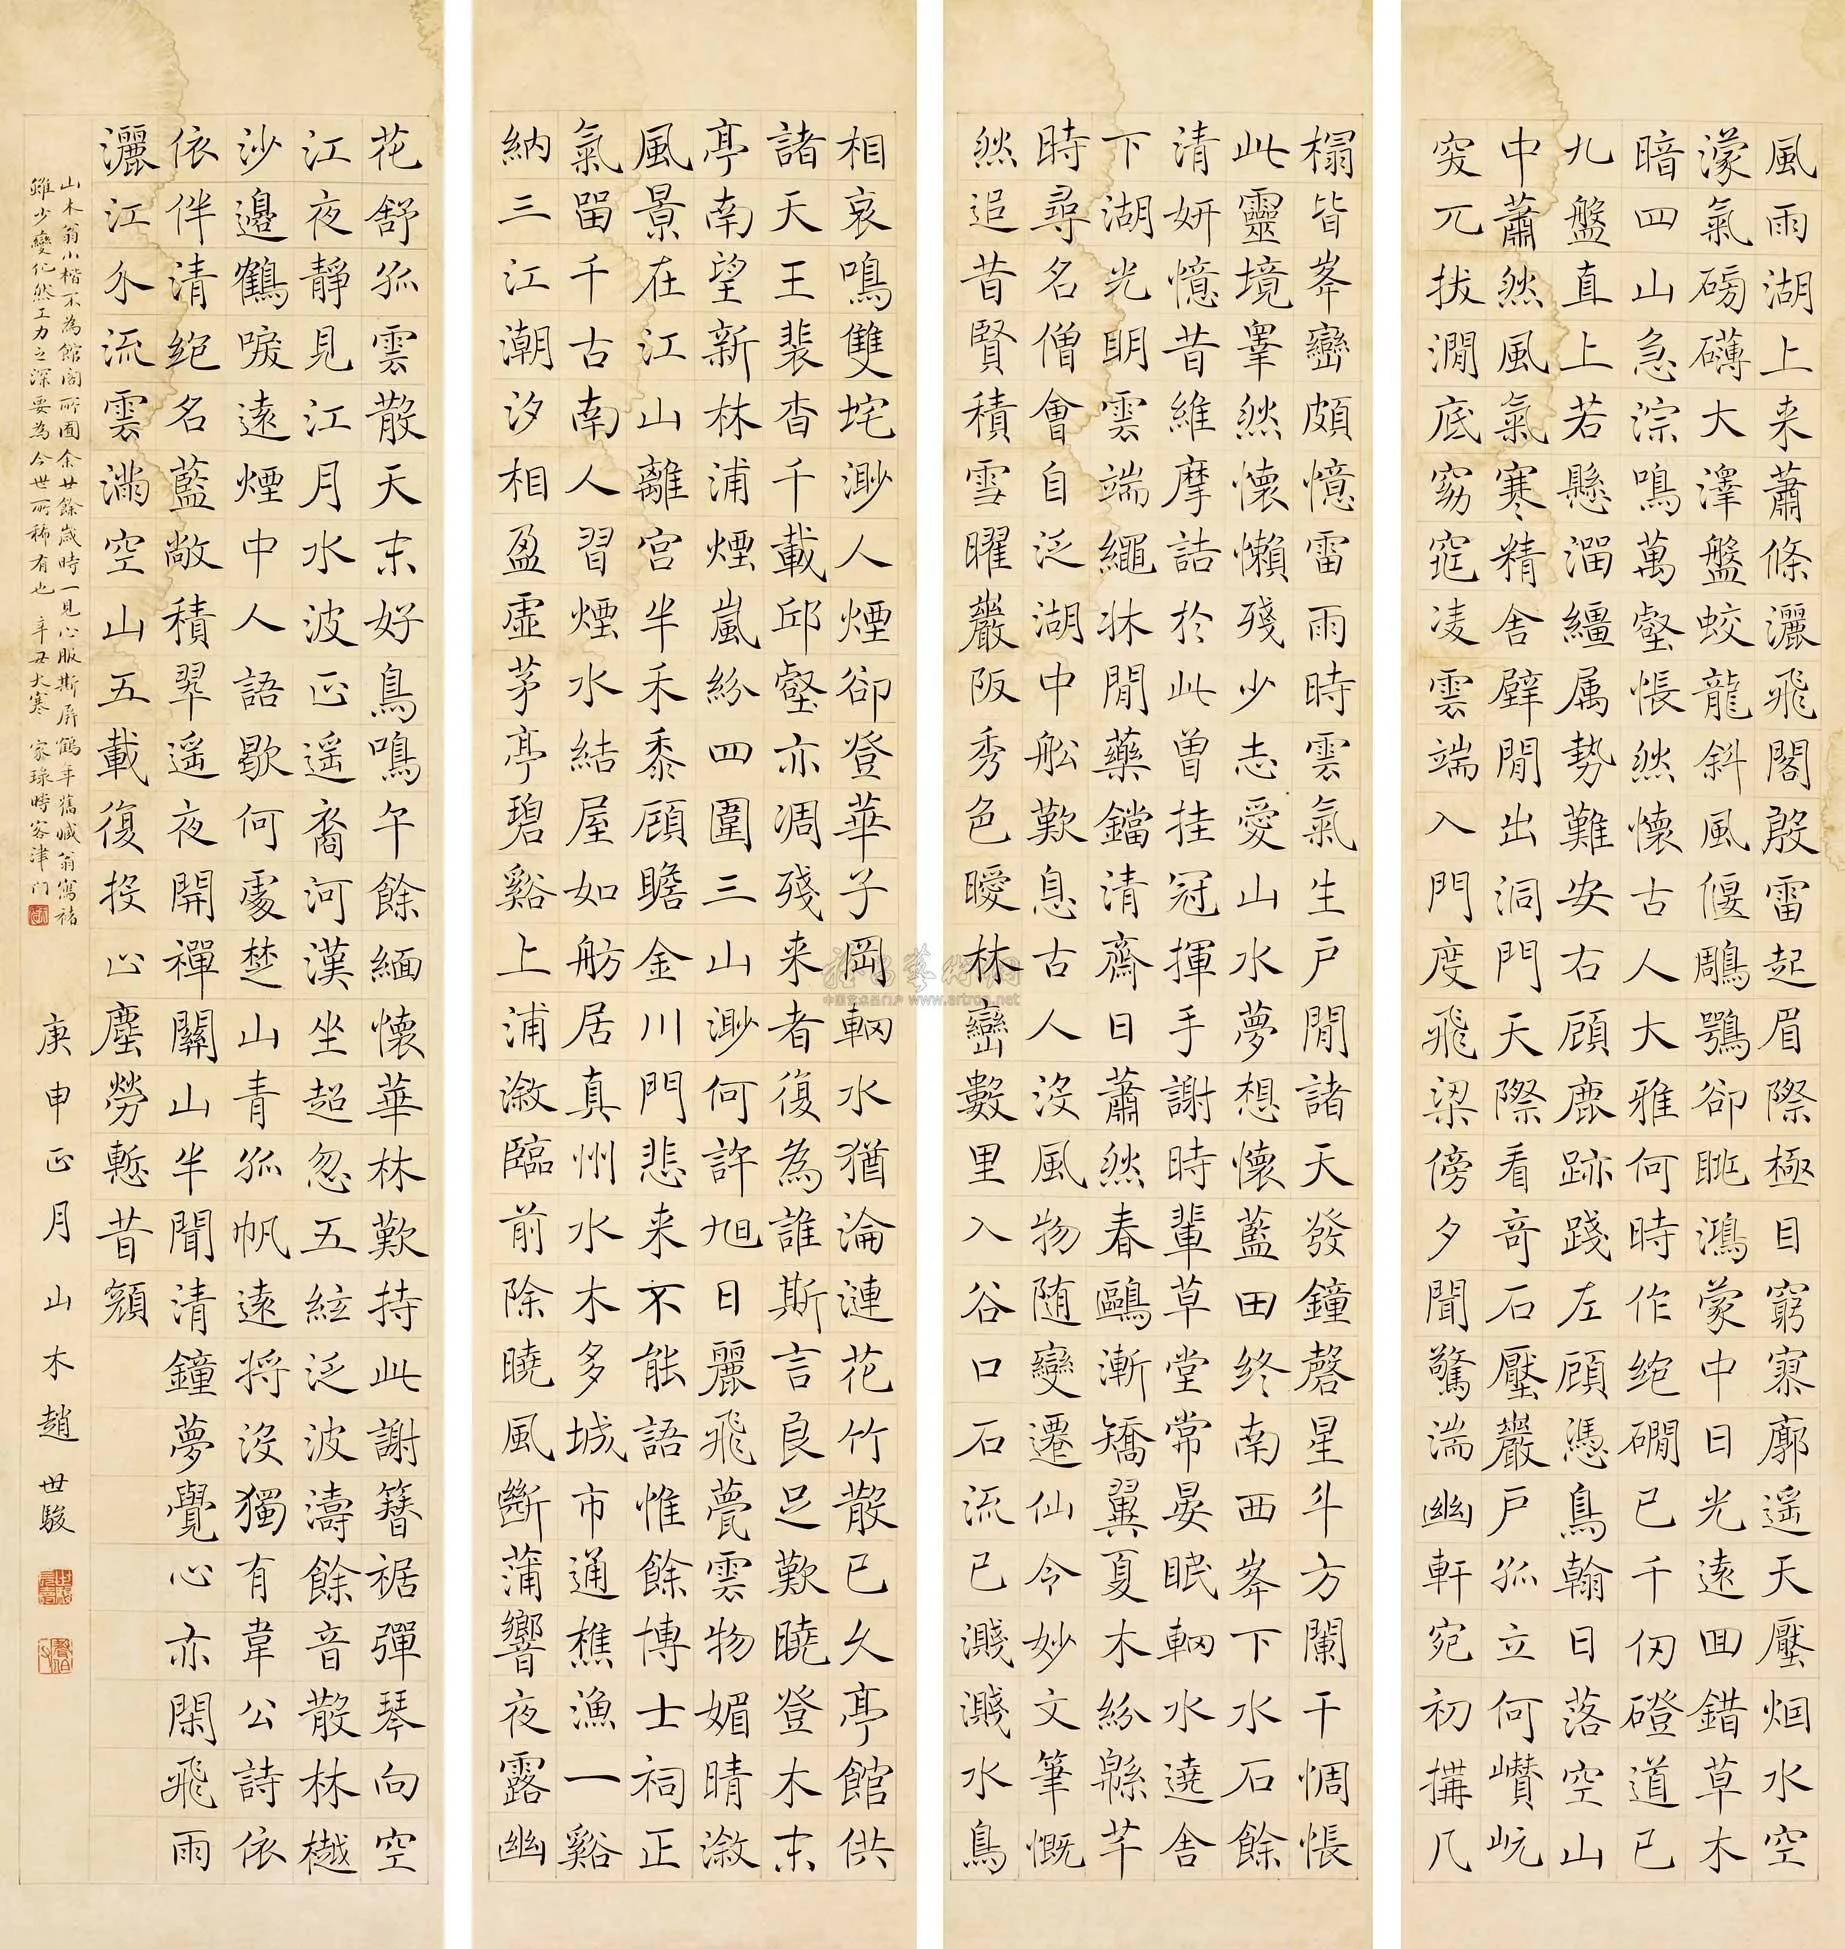 風雨湖上来蕭條灑飛閣殷雷起眉際極目窮寥廓遥天壓烟水空
濛氣磅礴大澤盤蛟龍斜風偃鵰鶚卻眺鴻蒙中日光遠回錯草木
暗四山急淙鳴萬壑悵然懷古人大雅何時作絶磵已千仞磴道已
九盤直上若懸溜繮属勢難安右顧鹿跡踐左顧憑鳥翰日落空山
中蕭然風氣寒精舍壁閒出洞門天際看奇石壓巖戶孤立何巑岏
突兀拔澗底窈窕凌雲端入門度飛梁傍夕聞驚湍幽軒宛初搆几
榻皆峯巒頗憶雷雨時雲氣生戶閒諸天發鐘磬星斗方闌干惆悵
此靈境搴然懷懶殘少志愛山水夢想懷藍田终南西峯下水石餘
清妍憶昔維摩詰於此曽挂冠揮手謝時輩草堂常晏眠輞水遶舍
下湖光明雲端繩牀閒藥鐺清齋日蕭然春鷗漸矯翼夏木紛緜芊
時尋名僧會自泛湖中舩歎息古人没風物随變遷仙令妙文筆慨
然追昔賢積雪曜巖阪秀色曖林巒數里入谷口石流已濺濺水鳥
相哀鳴雙垞渺人煙卻登華子岡輞水猶淪漣花竹散已久亭館供
諸天王裴杳千載邱壑亦凋殘来者復為誰斯言良足歎曉登木末
亭南望新林浦煙嵐紛四圍三山渺何許旭日麗飛甍雲物媚晴漵
風景在江山離宫半禾黍顧瞻金川門悲来不能語惟餘博士祠正
氣留千古南人習煙水結屋如舫居真州水木多城市通樵漁一谿
納三江潮汐相盈虚茅亭碧谿上浦漵臨前除曉風斷蒲響夜露幽
花舒孤雲散天末好鳥鳴午餘緬懷華林歎持此謝簪裾彈琴向空
江夜靜見江月水波正遥裔河漢坐超忽五絃泛波濤餘音散林樾
沙邊鶴唳遠煙中人語歇何處楚山青孤帆遠将没獨有韋公詩依
依伴清絶名藍敞積翠遥夜開禪關山半聞清鐘夢覺心亦閑飛雨
灑江水流雲滿空山五載復投心塵勞慙昔顏
庚申正月 山木趙世駿
山木翁小楷不為館閣所囿余廿餘歲時一見心服斯屏鶴年舊臧翁寫褚
雖少變化然工力之深要為今世所稀有也 辛丑大寒 家琭時客津门
中国艺术品门户 www.artron.net